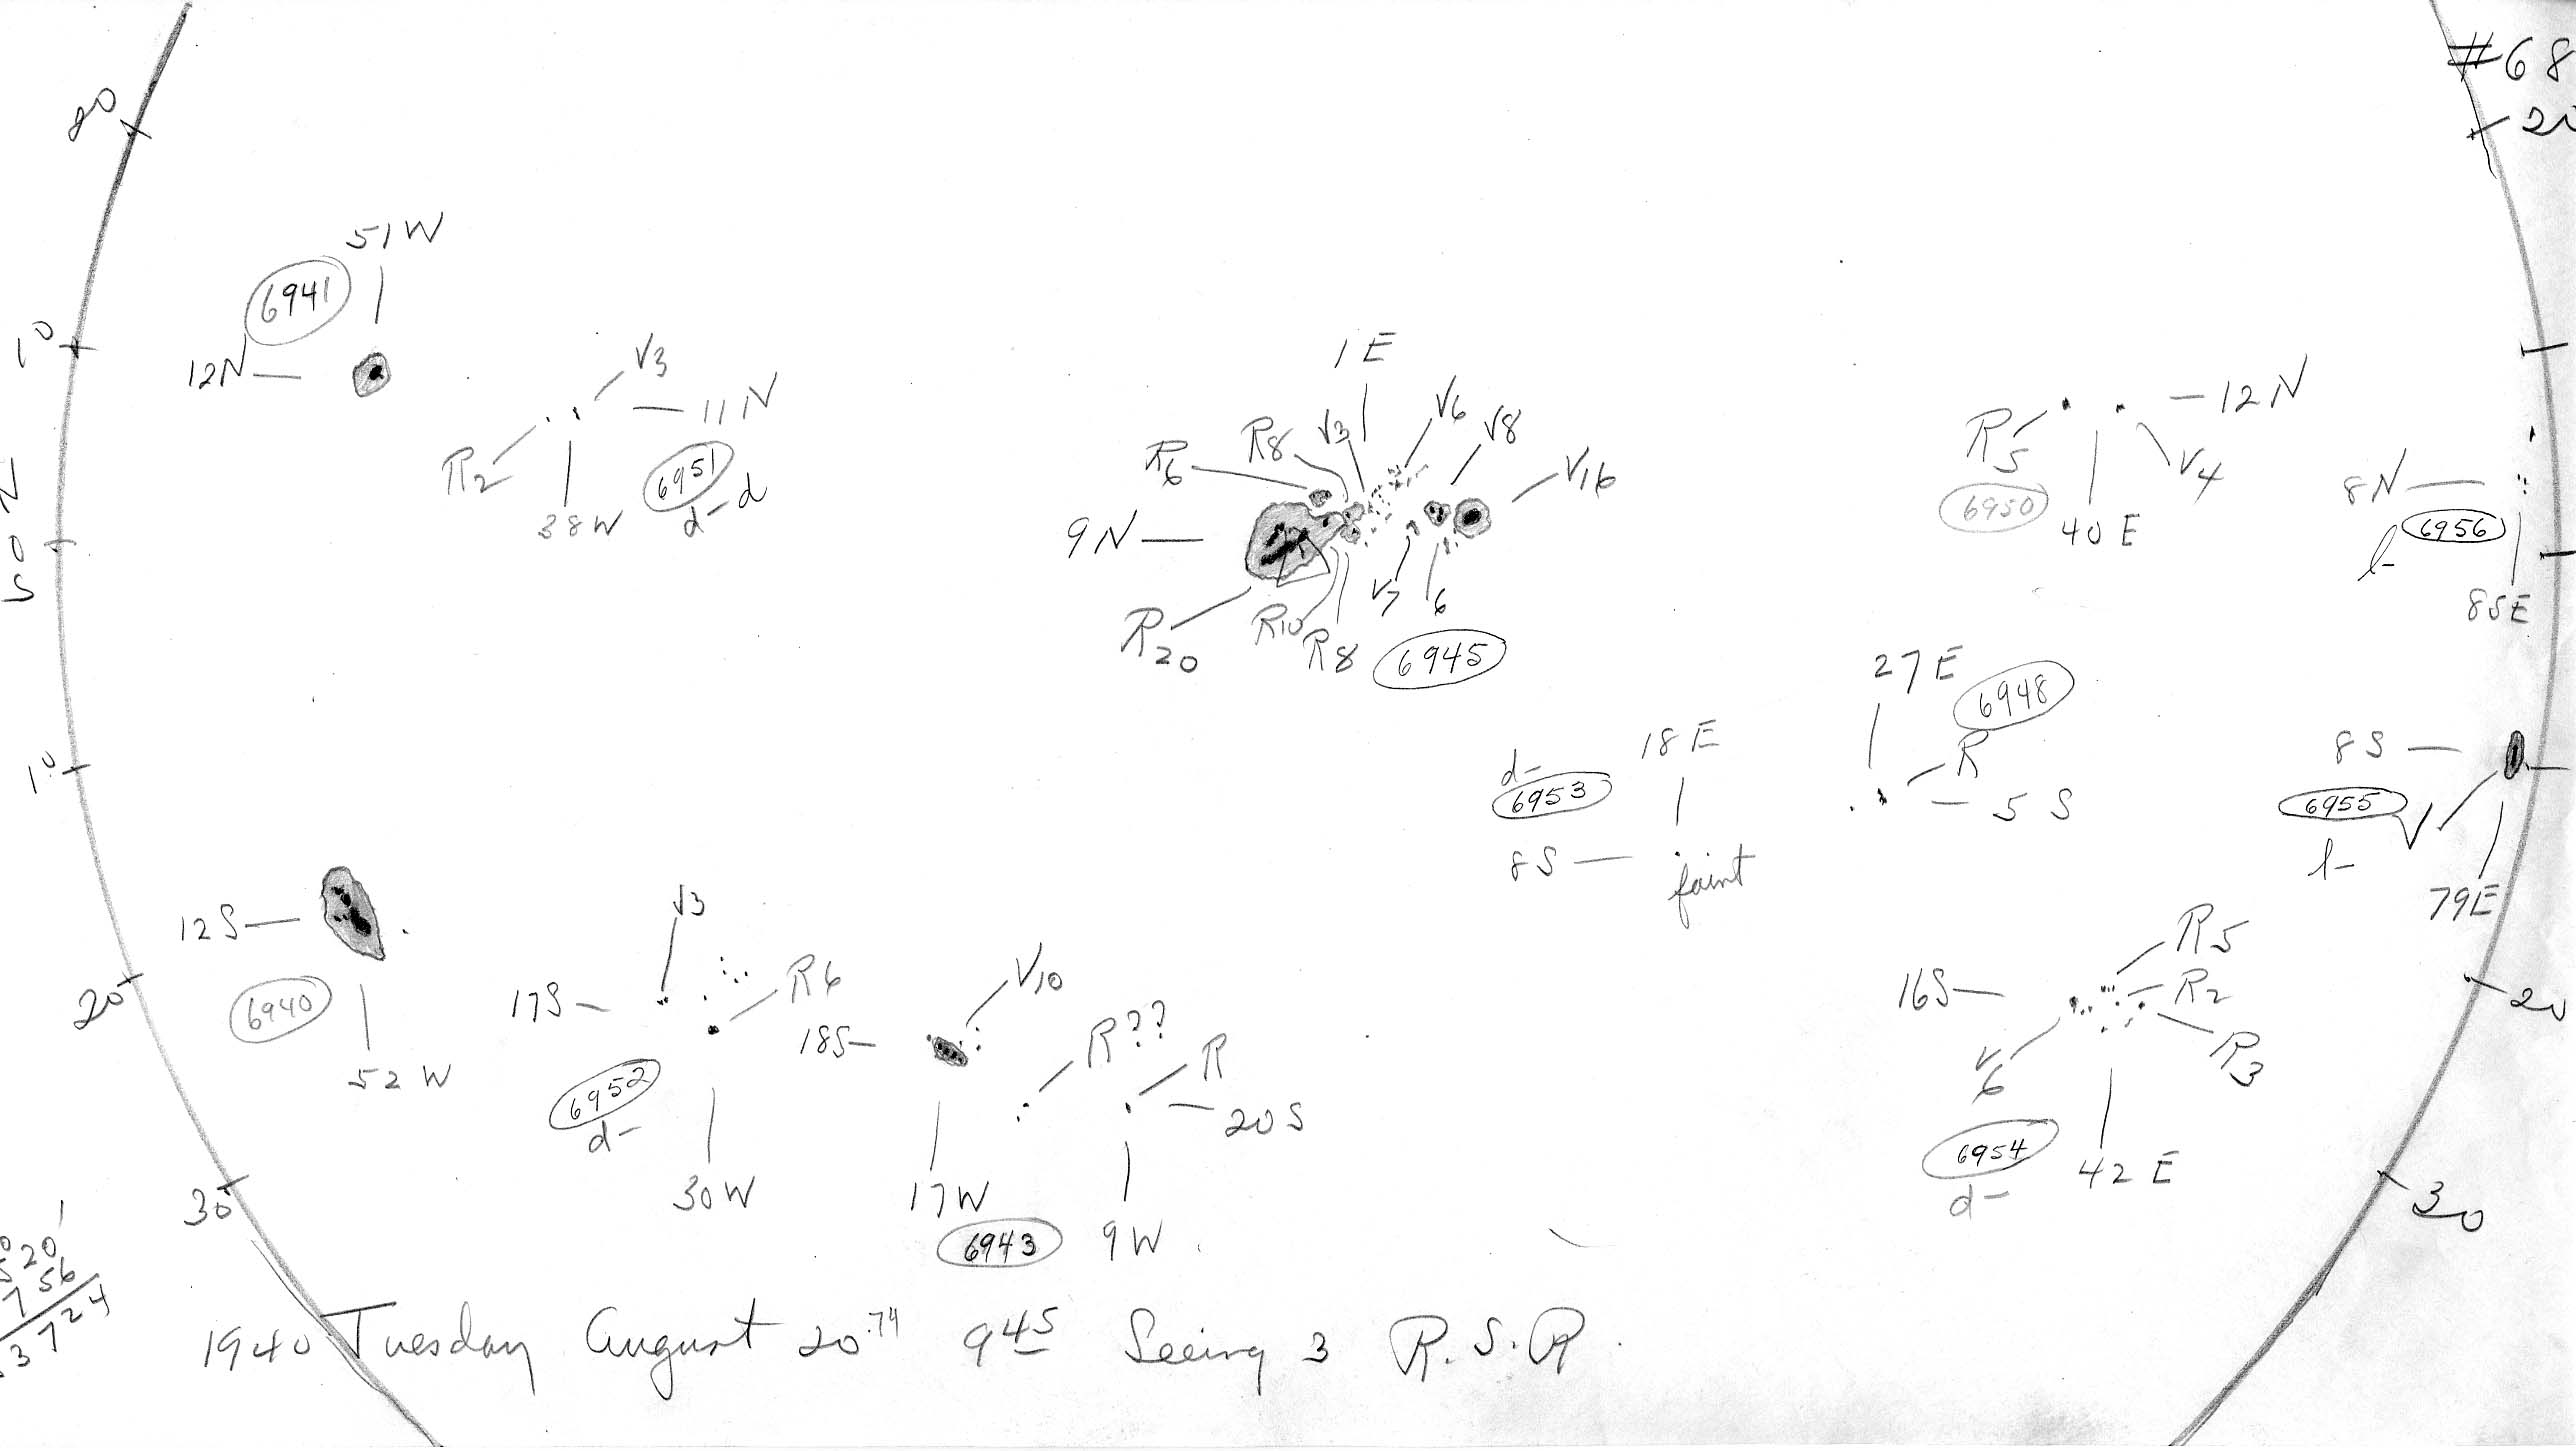 #68
80
20
51W
6941
10
12N
V3
11N
R2
6951
d-d
38W
1 E
V6
R8
V3
V8
R6
V16
9N
V7
6
R20
R10
R8
6945
12N
R5
V4
6950
40 E
8N
6956
l-
85E
N
0
S
27 E
6948
R
5 S
18 E
d-
6953
8S
faint
8S
6955
V
l-
79E
10
12S
6940
52W
20
V3
17S
R6
6952
d-
30W
V10
18S
R??
R
20S
17W
6943
9W
R5
16S
R2
R3
V6
6954
d-
42 E
20
30
30
520
756
3724
1940 Tuesday August 20.74 9 45 Seeing 3 R.S.R.